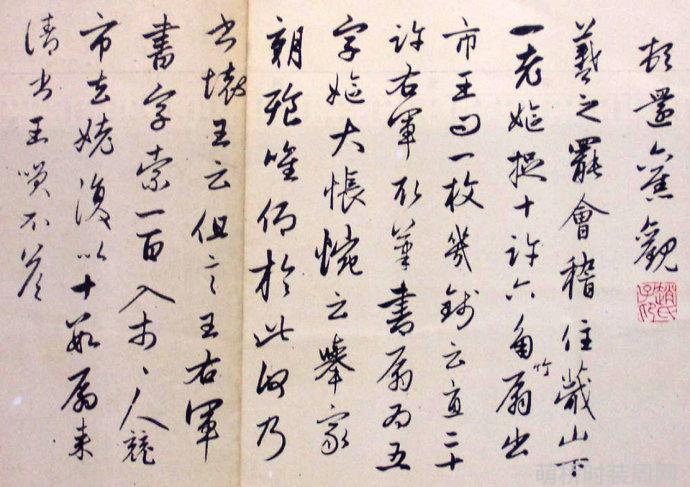 頓還舊觀
趙氏子昂
羲之罷會稽住蕺山下
一老嫗捉十許六角竹扇出
市王問一枚幾錢云直二十
許右軍取筆書扇為五
字嫗大悵惋云舉家
朝飡唯仰於此何乃
書壞王云但言王右軍
書字索一百入市〻人競
市去姥復以十數扇來
請書王笑不答
时装周网